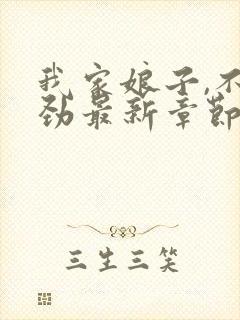 我家娘子,不
劲最新章節
三生三笑